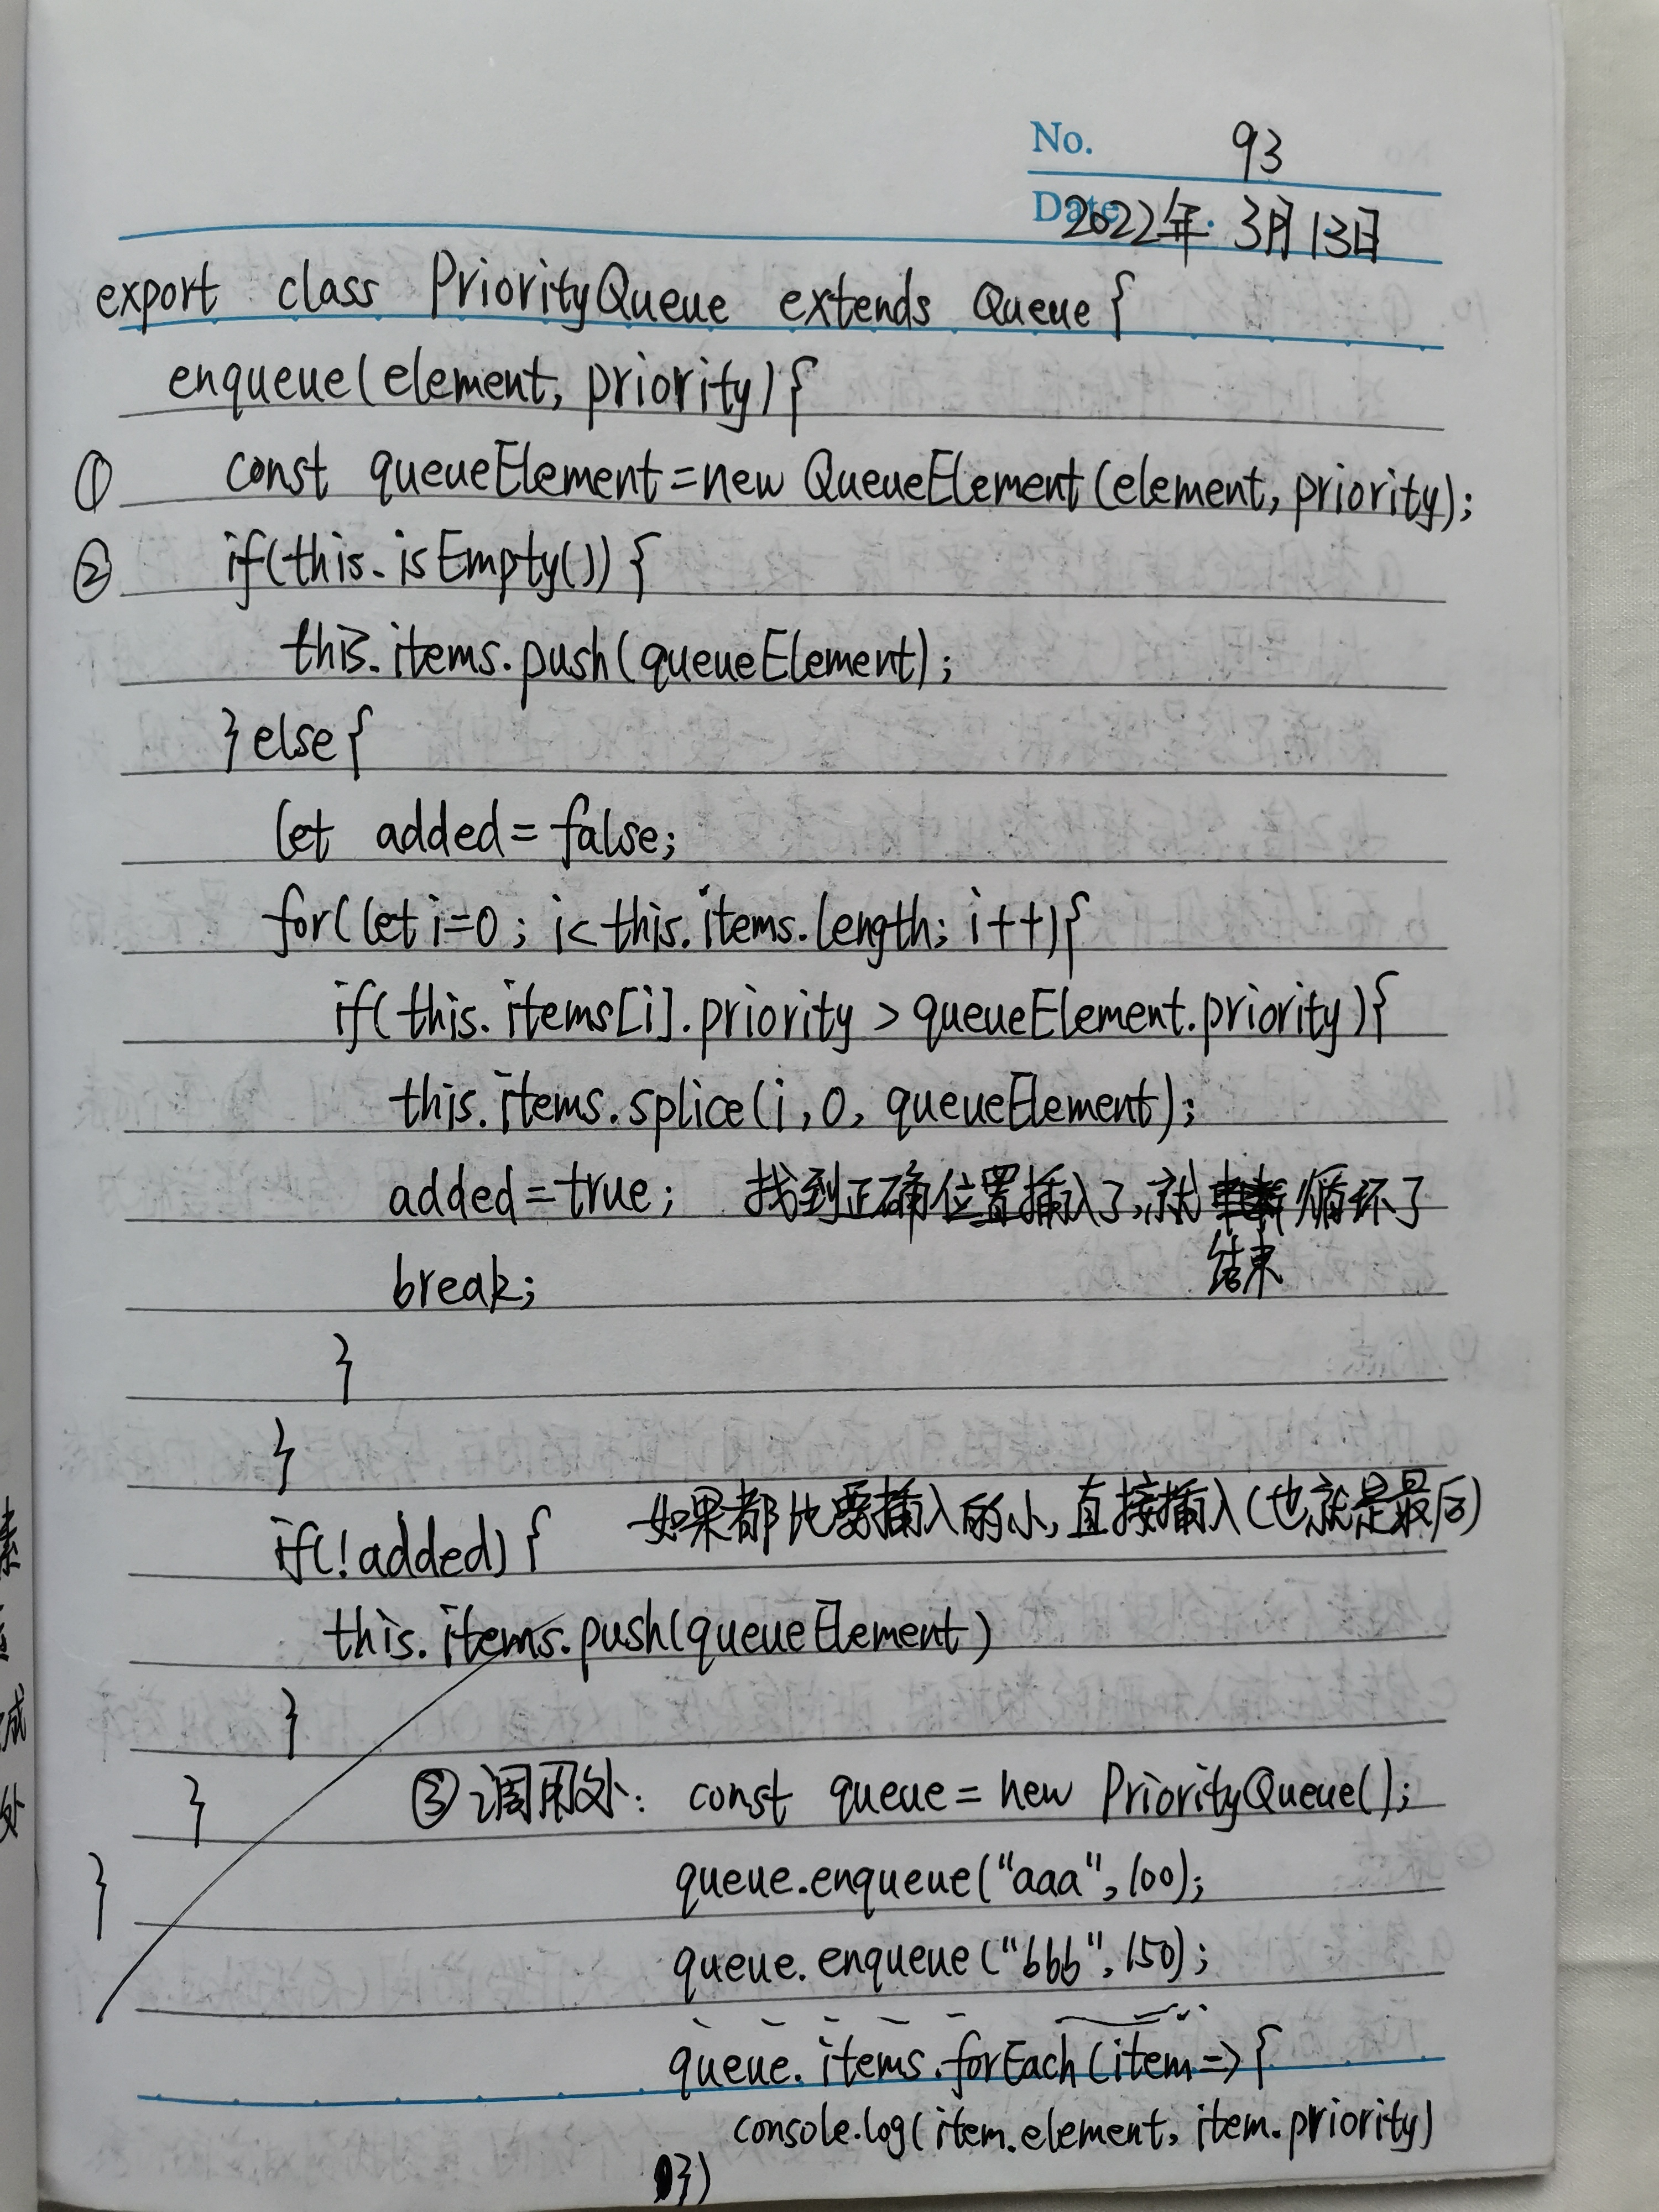 No. 93
Date 2022年 3月13日
export class PriorityQueue extends Queue{
enqueue(element, priority){
① const queueElement=new QueueElement(element, priority);
② if(this.isEmpty()){
this.items.push(queueElement);
}else{
let added=false;
for(let i=0; i<this.items.length; i++){
if(this.items[i].priority>queueElement.priority){
this.items.splice(i,0,queueElement);
added=true; 找到正确位置插入了,就 循环了
结束
break;
}
}
如果都比要插入的小,直接插入(也就是最后)
if(!added){
this.items.push(queueElement)
}
} ③调用处: const queue=new PriorityQueue();
} queue.enqueue("aaa",100);
queue.enqueue("bbb",150);
queue.items.forEach(item=>{
console.log(item.element, item.priority)
})
素
成
处